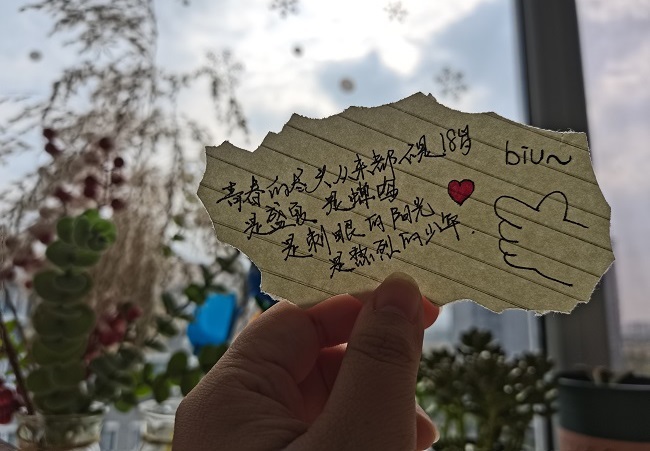 青春的尽头从来都不是18岁
是盛夏 是蝉鸣
是刺眼的阳光
是热烈的少年.
biu~